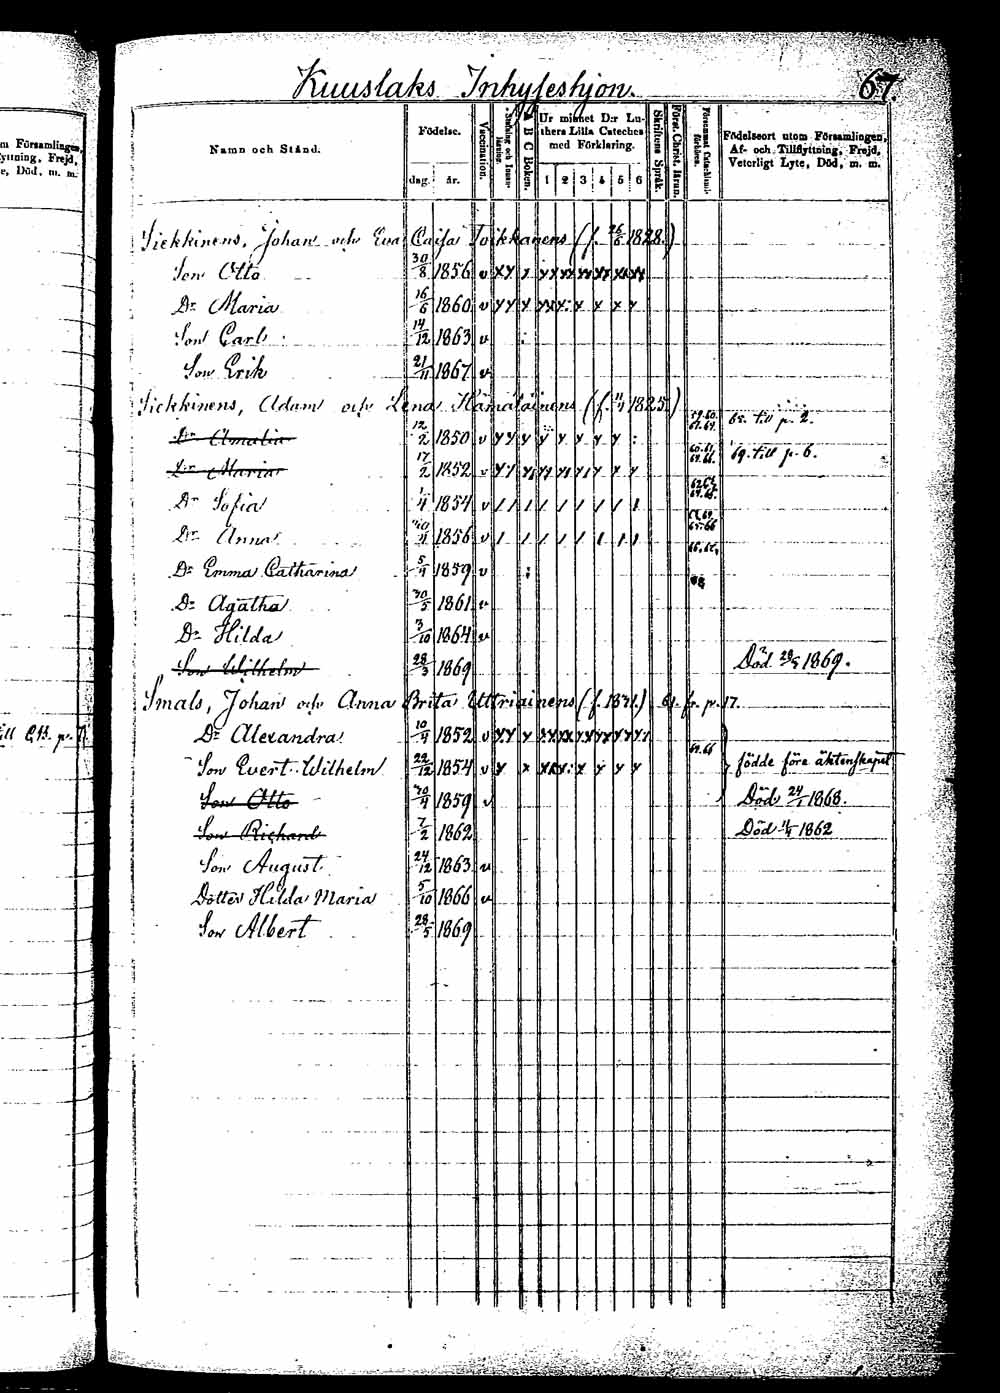 Kuuslaks Inhyseshjon.
67.
m Församlingen,
yttning, Frejd,
e, Död, m. m.
Namn och Stånd.
Födelse.
dag.
år.
Vaccination.
A B C Boken.
Ur minnet D:r Lu-
thers Lilla Cateches
med Förklaring.
1 2 3 4 5 6
Skriftens Språk.
Födelseort utom Församlingen,
Af- och Tillflyttning, Frejd,
Veterligt Lyte, Död, m. m.
Sickkinens, Johan och Eva Caisa Toikkanens (f. 26/6 1828.)
Son Otto 30/8 1856 v
Dr Maria 16/6 1860 v
Son Carl 14/12 1863 v
Son Erik 21/11 1867 v
Sickkinens, Adam och Lena Hämäläinens (f. 1825.)
Dr Amalia 12/2 1850 v 65. till p. 2.
Dr Maria 17/2 1852 v 69. till p. 6.
Dr Sofia 1854 v
Dr Anna 1856 v
Dr Emma Catharina 5/4 1859 v
Dr Agatha 30/5 1861 v
Dr Hilda 3/10 1864 v
Son Wilhelm 28/3 1869 Död 28/5 1869.
Smals, Johan och Anna Brita Uttriainens (f. 1831.) 61. fr. p. 17.
Dr Alexandra 10/4 1852 v
Son Evert Wilhelm 22/12 1854 v födde före äktenskapet
Son Otto 30/4 1859 v Död 24/1 1868.
Son Richard 7/2 1862 Död 1862
Son August 24/12 1863 v
Dotter Hilda Maria 5/10 1866 v
Son Albert 28/5 1869